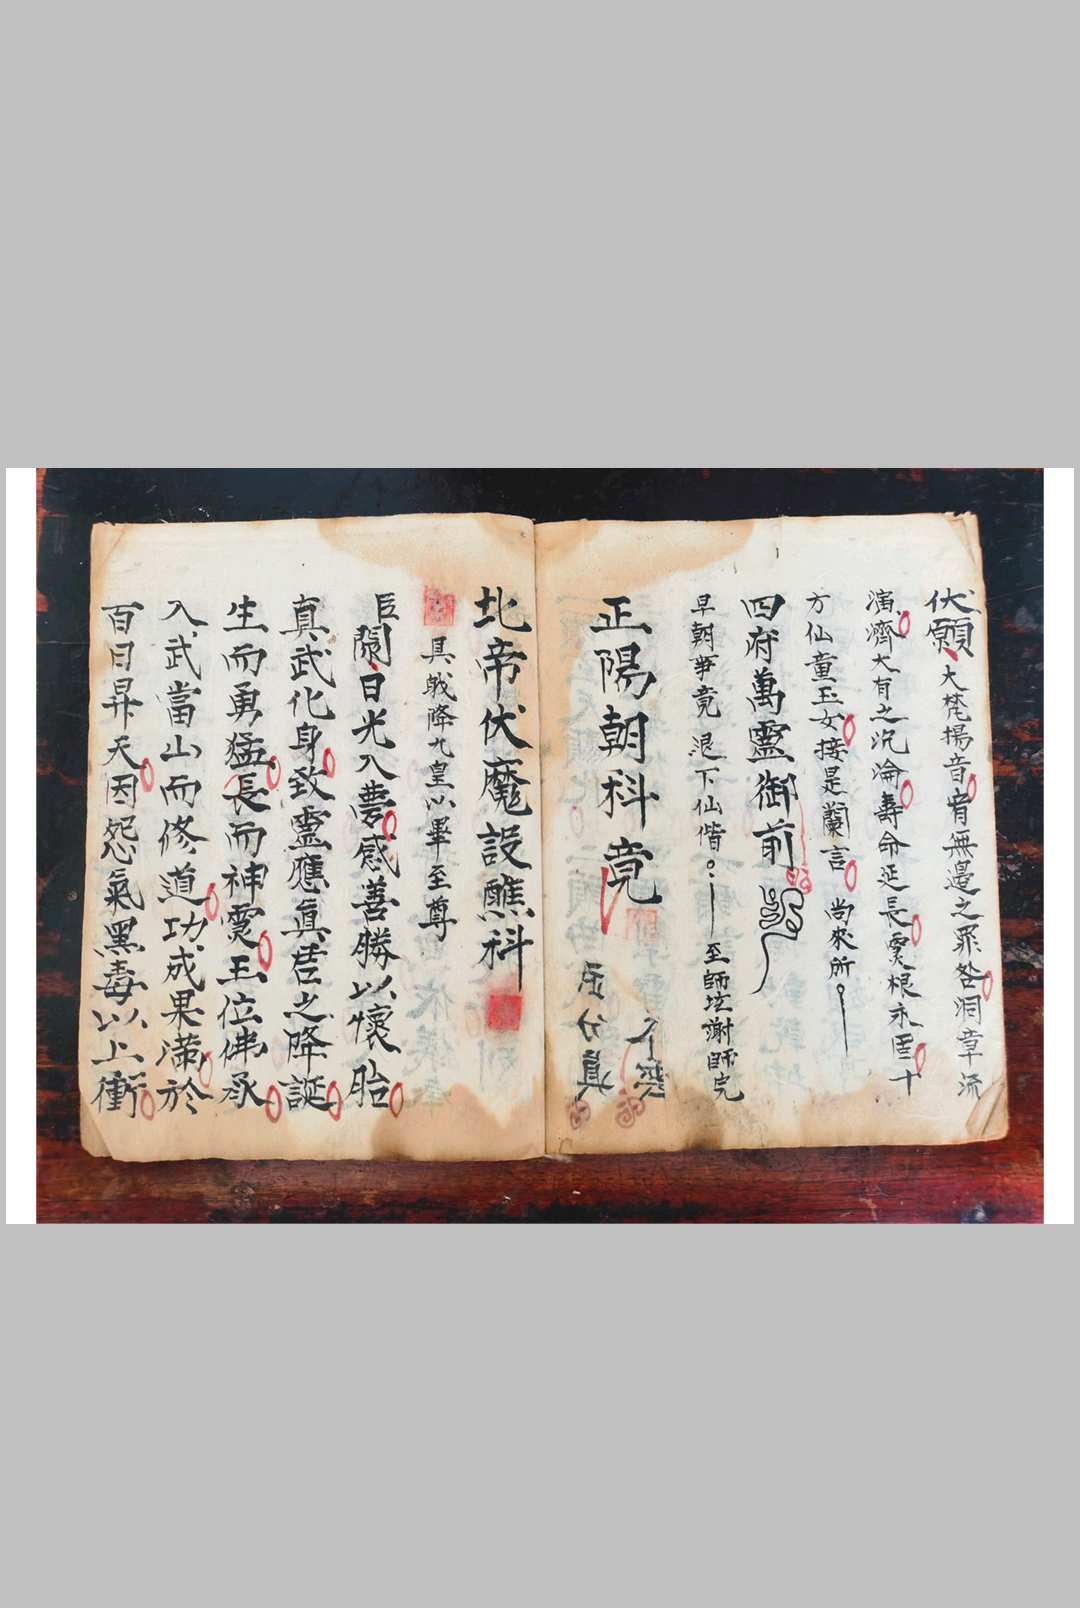 伏願大梵揚音宥無邊之罪咎洞章流
演濟大有之沉淪壽命延長靈根永固十
方仙童玉女接是蘭言 尚來所
四府萬靈御前
早朝事竟退下仙偕 至師坛謝師完
正陽朝科竟
北帝伏魔設醮科
具戝降九皇以畢至尊
臣聞日光入夢感善勝以懷胎
真武化身致靈應真君之降誕
生而勇猛長而神灵玉位佛承
入武當山而修道功成果滿於
百日昇天因怨氣黑毒以上衝